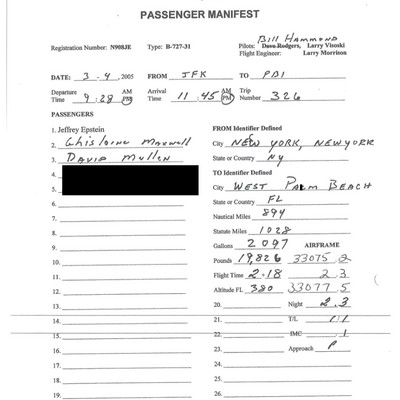 PASSENGER MANIFEST
Bill Hammond
Registration Number: N908JE Type: B-727-31 Pilots: Dave Rodgers, Larry Visoski
Flight Engineer: Larry Morrison
DATE: 3-4, 2005 FROM JFK TO PBI
Departure Time 9:28 AM PM Arrival Time 11:45 AM PM Trip Number 326
PASSENGERS
1. Jeffrey Epstein FROM Identifier Defined
2. Ghislaine Maxwell City NEW YORK, NEW YORK
3. David Mullen State or Country NY
4. TO Identifier Defined
5. City WEST PALM BEACH
6. State or Country FL
7. Nautical Miles 894
8. Statute Miles 1028
9. Gallons 2097 AIRFRAME
10. Pounds 19,826 33075.2
11. Flight Time 2+18 2.3
12. Altitude FL 380 33077.5
13. 20. Night 2.3
14. 21. T/L 1/1
15. 22. IMC .1
16. 23. Approach P
17. 24.
18. 25.
19. 26.